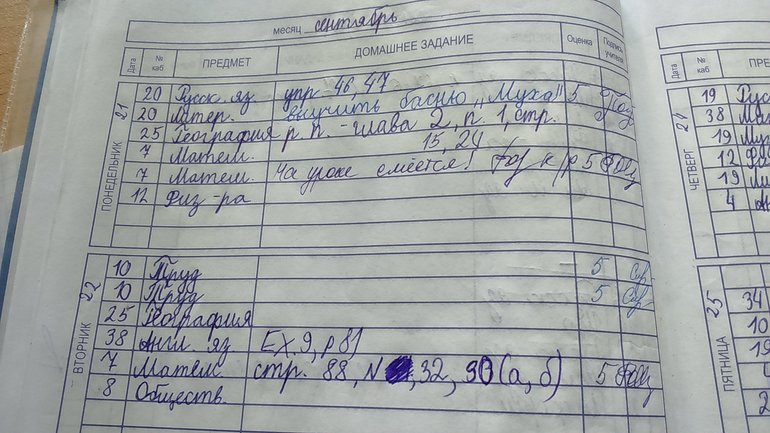 месяц сентябрь
Дата № каб ПРЕДМЕТ ДОМАШНЕЕ ЗАДАНИЕ Оценка Подпись учителя
ПОНЕДЕЛЬНИК 21
20 Русск. яз. упр 46, 47
20 Литер. выучить басню „Муха" 5
25 География р п. - глава 2, п. 1, стр.
7 Матем. 15, 24
7 Матем. На уроке смеётся! к/р 5
12 Физ-ра
ВТОРНИК 22
10 Труд 5
10 Труд 5
25 География
38 Англ. яз Ex. 9, p 81
7 Матем стр. 88, N 32, 30 (а, б) 5
8 Обществ.
Дата № каб
ЧЕТВЕРГ 24
19
38
19
12
19
4
ПЯТНИЦА 25
34
10
19
2